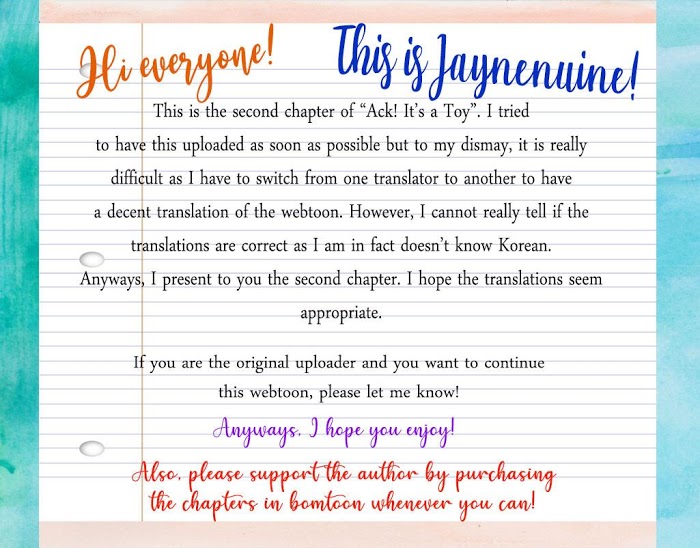 Hi everyone!
This is Jaynenuine!
This is the second chapter of “Ack! It's a Toy”. I tried
to have this uploaded as soon as possible but to my dismay, it is really
difficult as I have to switch from one translator to another to have
a decent translation of the webtoon. However, I cannot really tell if the
translations are correct as I am in fact doesn't know Korean.
Anyways, I present to you the second chapter. I hope the translations seem
appropriate.
If you are the original uploader and you want to continue
this webtoon, please let me know!
Anyways, I hope you enjoy!
Also, please support the author by purchasing
the chapters in bomtoon whenever you can!